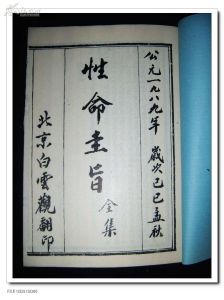 公元一九八九年 歲次己巳孟秋
性命圭旨 全集
北京白雲觀翻印